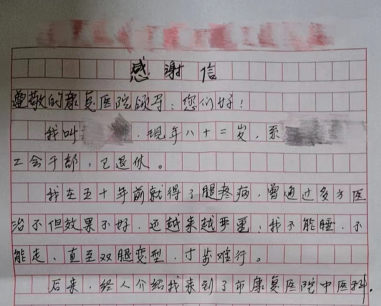 感谢信
尊敬的康复医院领导：您们好！
我叫 ，现年八十二岁，系
工会干部，已退休。
我在五十年前就得了腿疼病，曾通过多方医
治不但效果不好，还越来越严重，我不能睡，不
能走，直至双腿变型，寸步难行。
后来，经人介绍我来到了市康复医院中医科，